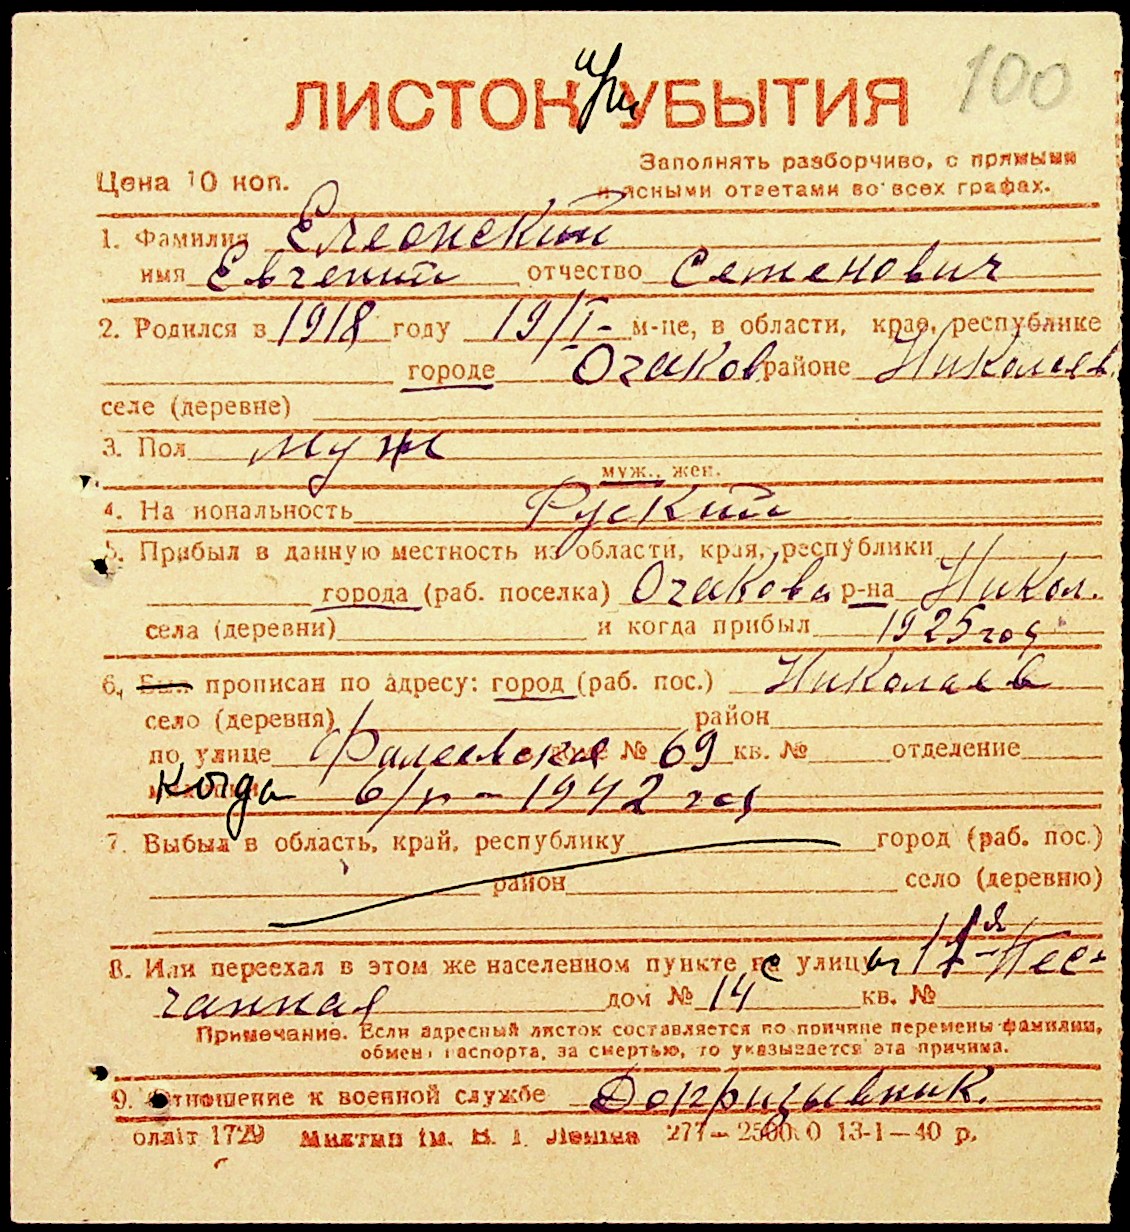 ЛИСТОК при УБЫТИЯ
100
Цена 10 коп.
Заполнять разборчиво, с прямыми
и ясными ответами во всех графах.
1. Фамилия Елеонский
имя Евгений отчество Семенович
2. Родился в 1918 году 19/I- м-це, в области, крае, республике
городе Очаков районе Николаев.
селе (деревне)
3. Пол муж
муж., жен.
4. На иональность Руский
5. Прибыл в данную местность из области, края, республики
города (раб. поселка) Очакова р-на Никол.
села (деревни) и когда прибыл 1925 год
6. Был прописан по адресу: город (раб. пос.) Николаев
село (деревня) район
по улице Фалеевская доме № 69 кв. № отделение
милиции когда 6/II - 1942 год
7. Выбыл в область, край, республику город (раб. пос.)
район село (деревню)
8. Или переехал в этом же населенном пункте с улицы 1я Пес-
чанная дом № 14 кв. №
Примечание. Если адресный листок составляется по причине перемены фамилии,
обмена паспорта, за смертью, то указывается эта причина.
9. Отношение к военной службе Допризывник.
олліт 1729 Миктип ім. В. І. Леніна 277— 13-1—40 р.